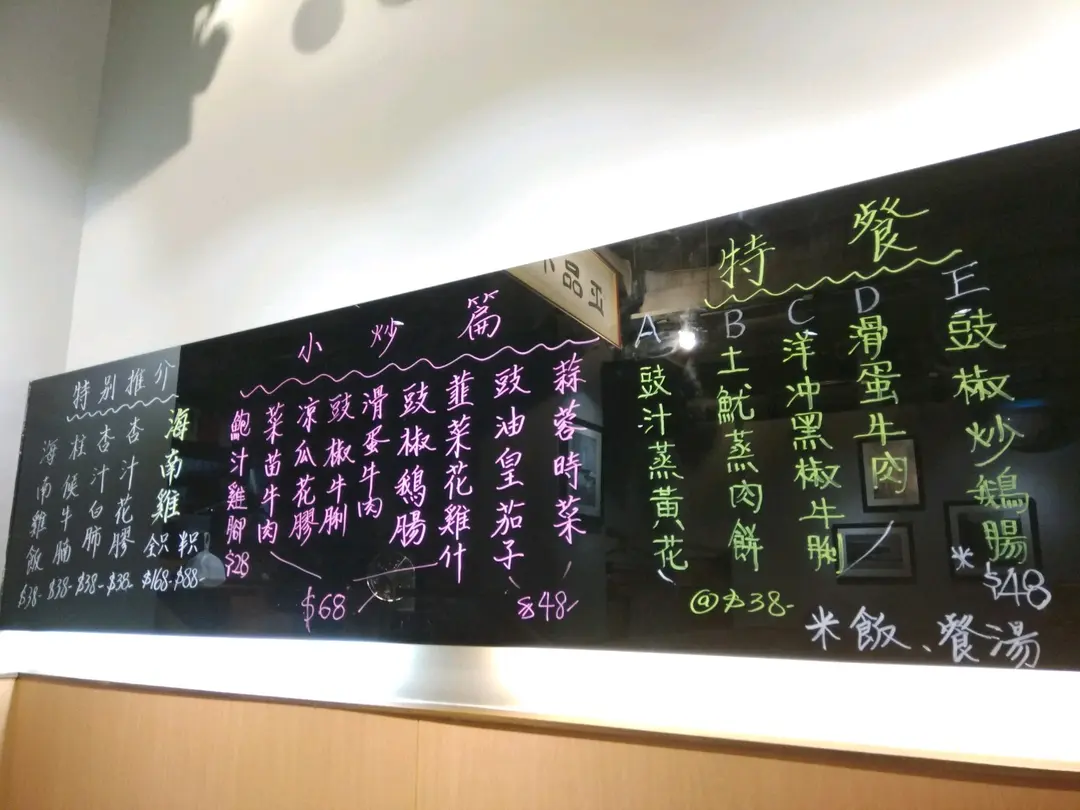 特别推介
海南雞飯 $38-
柱候牛腩 $38-
杏汁白肺 $38-
杏汁花膠 $38-
海南雞 全只 $168- 半只 $88-
小炒篇
鮑汁雞腳 $28
菜苗牛肉
凉瓜花膠
豉椒牛脷
滑蛋牛肉
豉椒鵝腸
韮菜花雞什
$68
豉油皇茄子
蒜蓉時菜
$48-
特餐
A 豉汁蒸黃花
B 土魷蒸肉餅
C 洋冲黑椒牛脷
D 滑蛋牛肉
@$38-
E 豉椒炒鵝腸
*$48
米飯、餐湯
正品